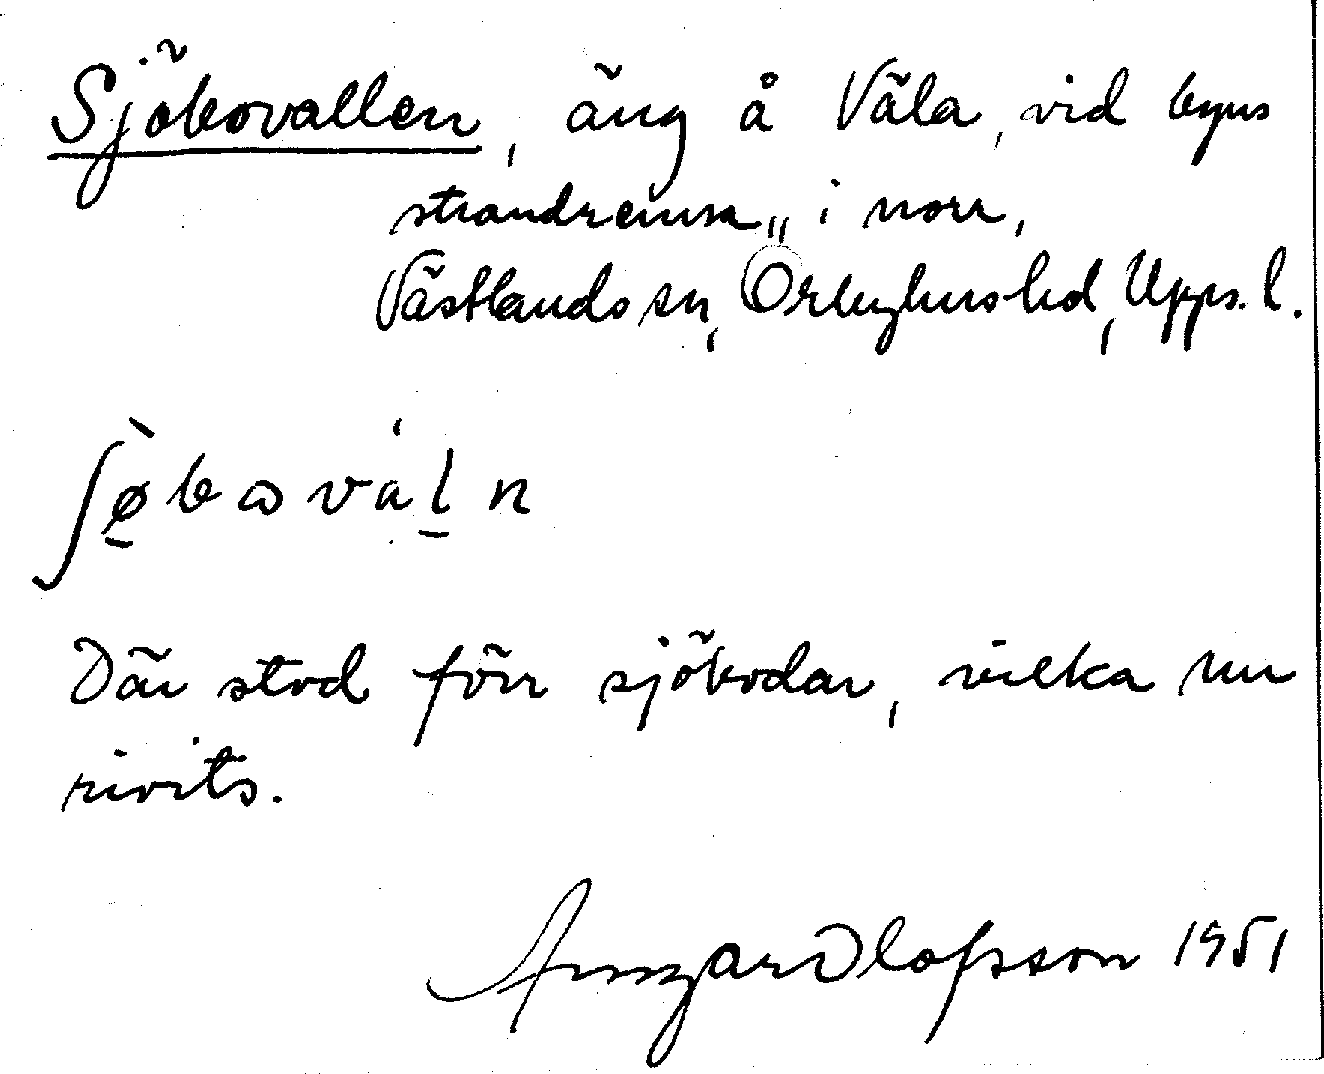 Sjöbovallen, äng å Väla, vid byns
strandremsa,, i norr,
Västlands sn, Örbyhus hd, Upps. l.
ʃø̠̀bɷvál̠n
Där stod förr sjöbodar, vilka nu
rivits.
Ansgar Olofsson 1951